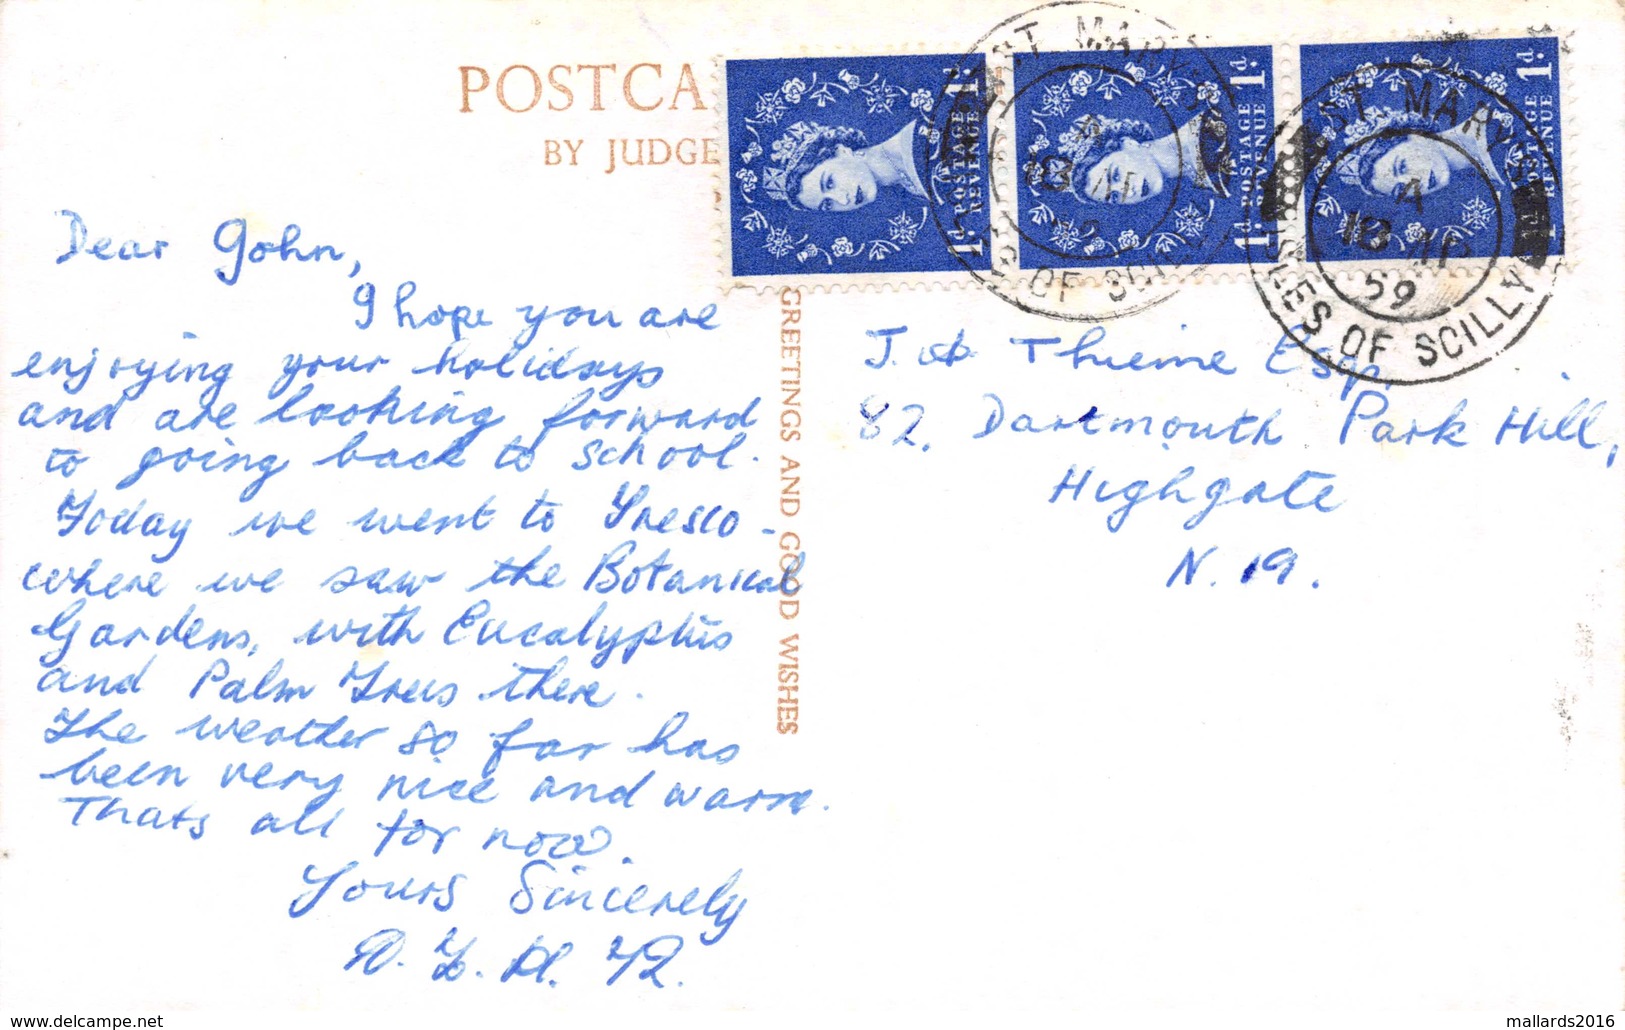 POSTCA
BY JUDGE
Dear John,
I hope you are
enjoying your holidays
and are looking forward
to going back to school.
Today we went to Tresco -
where we saw the Botanical
Gardens, with Eucalyptus
and Palm Trees there.
The weather so far has
been very nice and warm.
Thats all for now.
Yours Sincerely
GREETINGS AND GOOD WISHES
1d POSTAGE REVENUE 1d
1d POSTAGE REVENUE 1d
1d POSTAGE REVENUE 1d
ST. MARY'S
A
18 AP
59
ISLES OF SCILLY
ST. MARY'S
A
18 AP
59
ISLES OF SCILLY
Thieme Esq,
82, Dartmouth Park Hill,
Highgate
N. 19.
www.delcampe.net
mallards2016